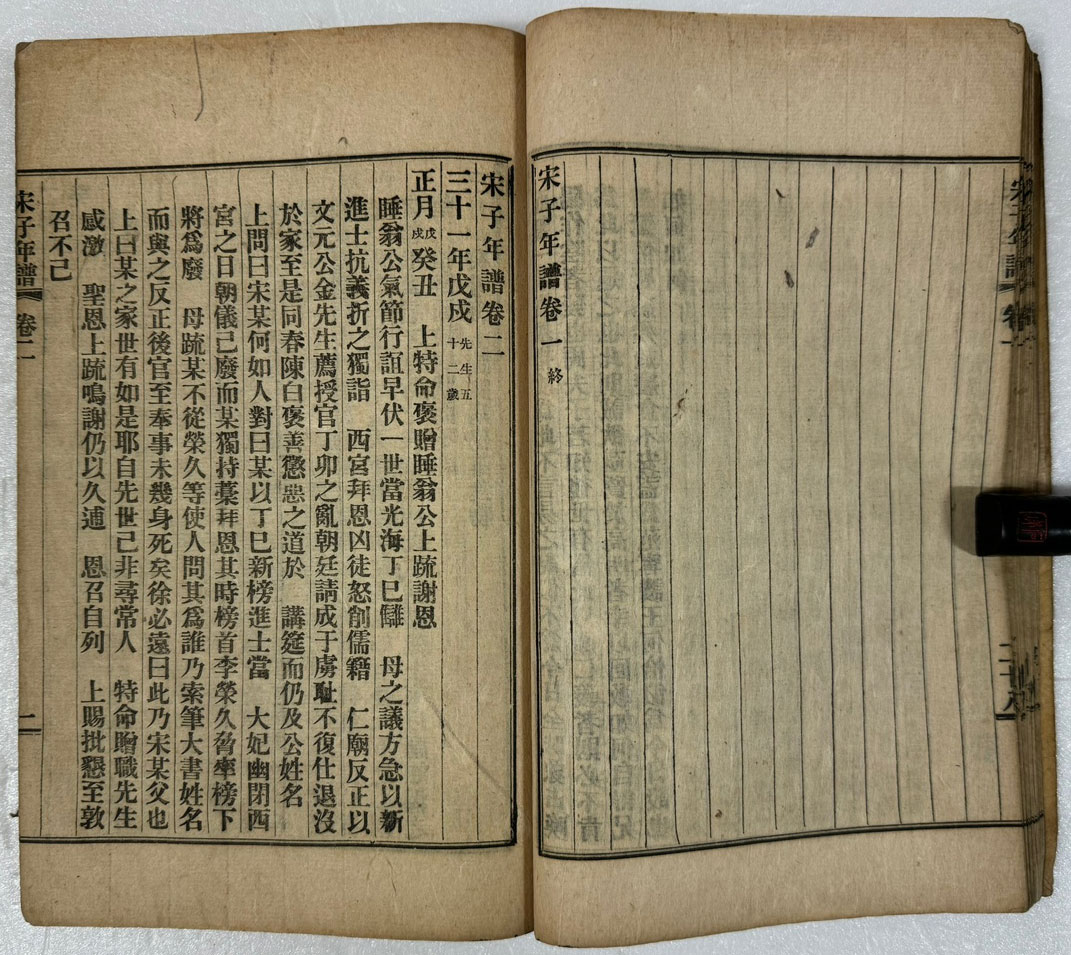 宋子年譜卷一 終
宋子年譜卷二
三十一年戊戌 先生五十二歲
正月戊戌癸丑 上特命褒贈睡翁公上疏謝恩
睡翁公氣節行誼早伏一世當光海丁巳讎 母之議方急以新
進士抗義折之獨詣 西宮拜恩凶徒怒削儒籍 仁廟反正以
文元公金先生薦授官丁卯之亂朝廷請成于虜耻不復仕退沒
於家至是同春陳白褒善懲惡之道於 講筵而仍及公姓名
上問曰宋某何如人對曰某以丁巳新榜進士當 大妃幽閉西
宮之日朝儀已廢而某獨持藁拜恩其時榜首李榮久脅率榜下
將爲廢 母疏某不從榮久等使人問其爲誰乃索筆大書姓名
而與之反正後官至奉事未幾身死矣徐必遠曰此乃宋某父也
上曰某之家世有如是耶自先世已非尋常人 特命贈職先生
感激 聖恩上疏鳴謝仍以久逋 恩召自列 上賜批懇至敦
召不已
宋子年譜 卷二
二